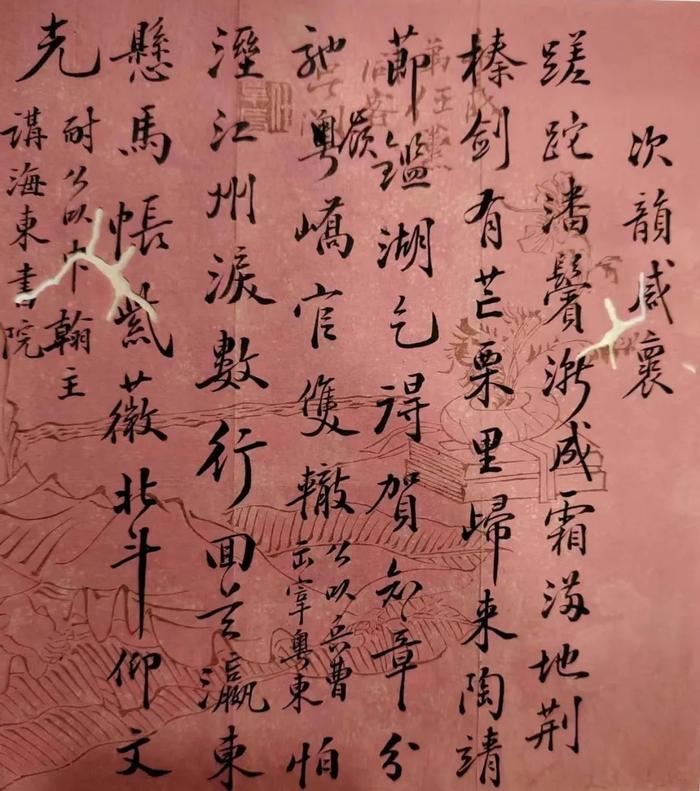 次韻咸襄
蹉跎潘鬢漸成霜滿地荊
榛劍有芒栗里歸來陶靖
節鑑湖乞得賀知章分
馳粵嶺嶠官雙轍公以兵曹出宰粵東怕
溼江州淚數行回首瀛東
懸馬帳紫薇北斗仰文
光耐公以中翰主
講海東書院